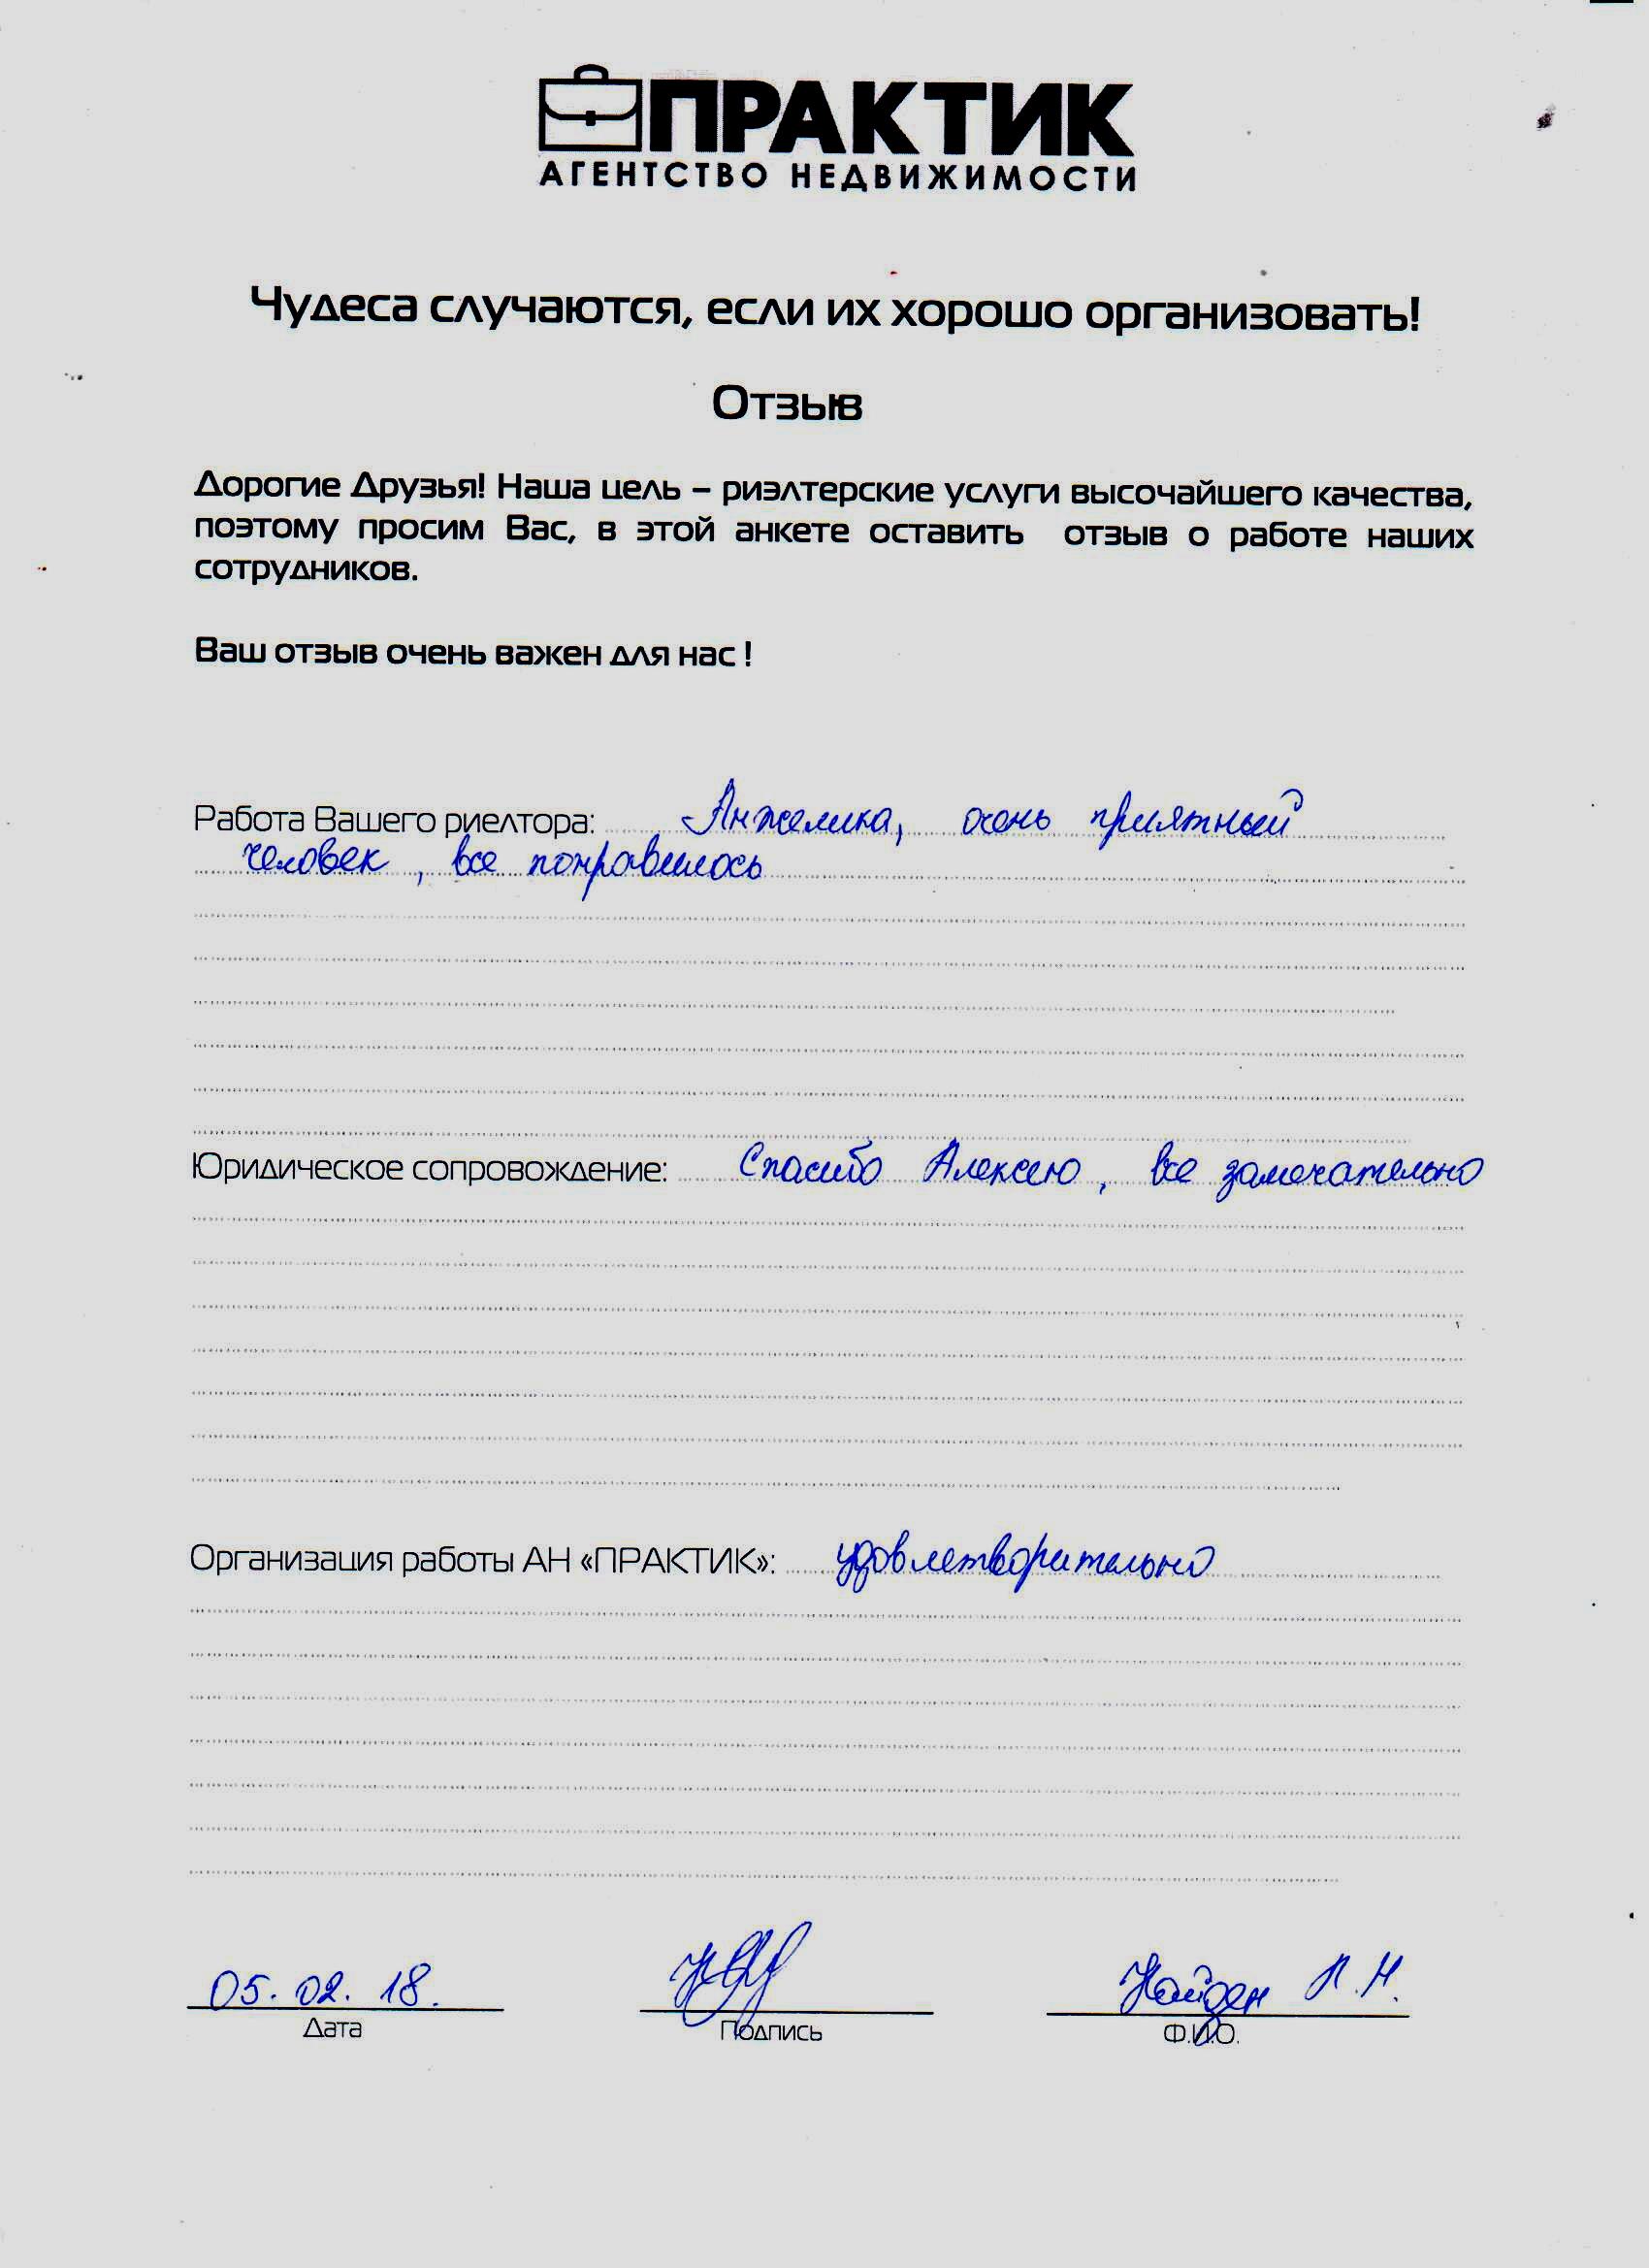 ПРАКТИК
АГЕНТСТВО НЕДВИЖИМОСТИ
Чудеса случаются, если их хорошо организовать!
Отзыв
Дорогие Друзья! Наша цель – риэлтерские услуги высочайшего качества,
поэтому просим Вас, в этой анкете оставить отзыв о работе наших
сотрудников.
Ваш отзыв очень важен для нас !
Работа Вашего риелтора: Анжелика, очень приятный
человек , все понравилось
Юридическое сопровождение: Спасибо Алексею , все замечательно
Организация работы АН «ПРАКТИК»: удовлетворительно
05. 02. 18. Найден Л. Н.
Дата Подпись Ф.И.О.